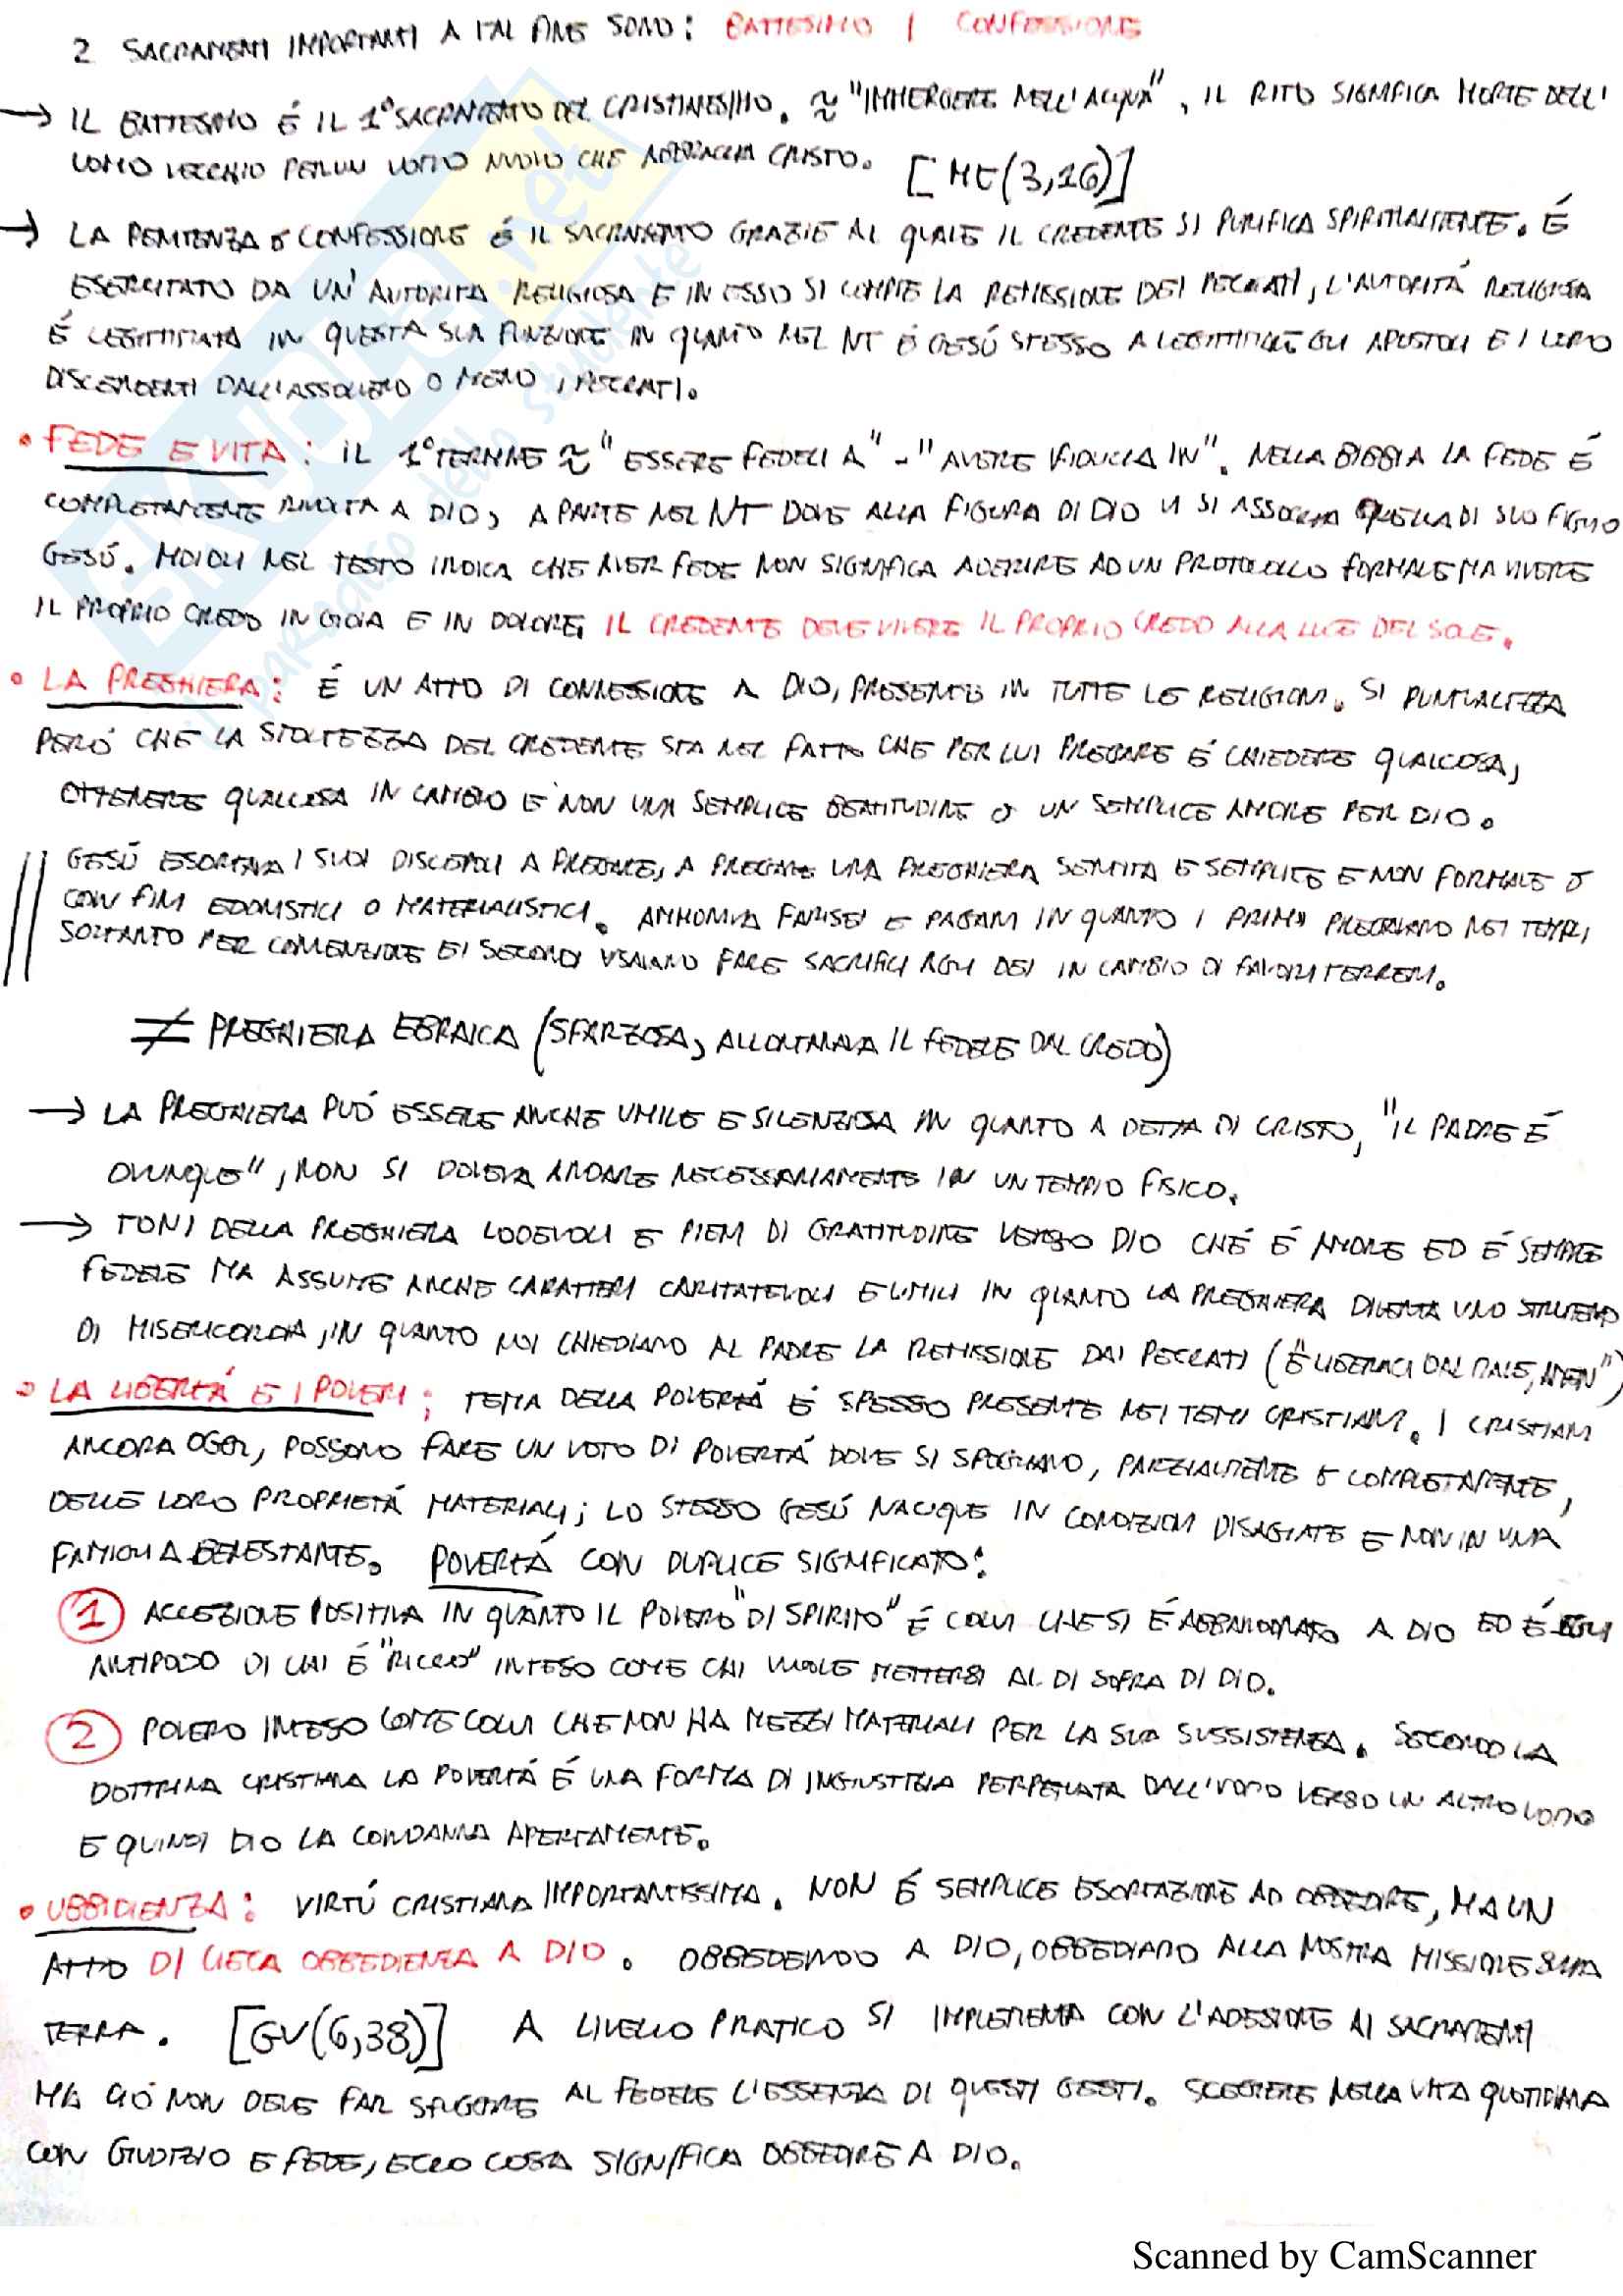 2 SACRAMENTI IMPORTANTI A TAL FINE SONO: BATTESIMO / CONFESSIONE
→ IL BATTESIMO É IL 1° SACRAMENTO DEL CRISTINESIMO. ≈ "IMMERGERE NELL'ACQUA", IL RITO SIGNIFICA MORTE DELL'
UOMO VECCHIO PER UN UOMO NUOVO CHE ABBRACCIA CRISTO. [MT(3,16)]
→ LA PENITENZA O CONFESSIONE É IL SACRAMENTO GRAZIE AL QUALE IL CREDENTE SI PURIFICA SPIRITUALMENTE. É
ESERCITATO DA UN' AUTORITÁ RELIGIOSA E IN ESSO SI COMPIE LA REMISSIONE DEI PECCATI, L'AUTORITÁ RELIGIOSA
É LEGITTIMATA IN QUESTA SUA FUNZIONE IN QUANTO NEL NT É GESÚ STESSO A LEGITTIMARE GLI APOSTOLI E I LORO
DISCENDENTI DALL'ASSOLVERE O MENO I PECCATI.
• FEDE E VITA: IL 1° TERMINE ≈ "ESSERE FEDELI A" - "AVERE FIDUCIA IN". NELLA BIBBIA LA FEDE É
COMPLETAMENTE RIVOLTA A DIO, A PARTE NEL NT DOVE ALLA FIGURA DI DIO VI SI ASSOCIA QUELLA DI SUO FIGLIO
GESÚ. MOIOLI NEL TESTO INDICA CHE AVER FEDE NON SIGNIFICA ADERIRE AD UN PROTOCOLLO FORMALE MA VIVERE
IL PROPRIO CREDO IN GIOIA E IN DOLORE; IL CREDENTE DEVE VIVERE IL PROPRIO CREDO ALLA LUCE DEL SOLE.
• LA PREGHIERA: É UN ATTO DI CONNESSIONE A DIO, PRESENTE IN TUTTE LE RELIGIONI. SI PUNTUALIZZA
PERÓ CHE LA STOLTEZZA DEL CREDENTE STA NEL FATTO CHE PER LUI PREGARE É CHIEDERE QUALCOSA,
OTTENERE QUALCOSA IN CAMBIO E NON UNA SEMPLICE BEATITUDINE O UN SEMPLICE AMORE PER DIO.
GESÚ ESORTAVA I SUOI DISCEPOLI A PREGARE, A PREGARE UNA PREGHIERA SENTITA E SEMPLICE E NON FORMALE O
CON FINI EDONISTICI O MATERIALISTICI. AMMONIVA FARISEI E PAGANI IN QUANTO I PRIMI PREGAVANO NEI TEMPLI
SOLTANTO PER CONVENZIONE E I SECONDI USAVANO FARE SACRIFICI AGLI DEI IN CAMBIO DI FAVORI TERRENI.
≠ PREGHIERA EBRAICA (SFARZOSA, ALLONTANAVA IL FEDELE DAL CREDO)
→ LA PREGHIERA PUÓ ESSERE ANCHE UMILE E SILENZIOSA IN QUANTO A DETTA DI CRISTO, "IL PADRE É
OVUNQUE", NON SI DOVEVA ANDARE NECESSARIAMENTE IN UN TEMPIO FISICO.
→ TONI DELLA PREGHIERA LODEVOLI E PIENI DI GRATITUDINE VERSO DIO CHE É AMORE ED É SEMPRE
FEDELE MA ASSUME ANCHE CARATTERI CARITATEVOLI E UMILI IN QUANTO LA PREGHIERA DIVENTA UNO STRUMENTO
DI MISERICORDIA, IN QUANTO NOI CHIEDIAMO AL PADRE LA REMISSIONE DAI PECCATI ("E LIBERACI DAL MALE, AMEN")
• LA LIBERTÁ E I POVERI: TEMA DELLA POVERTÁ É SPESSO PRESENTE NEI TEMI CRISTIANI. I CRISTIANI
ANCORA OGGI, POSSONO FARE UN VOTO DI POVERTÁ DOVE SI SPOGLIANO, PARZIALMENTE O COMPLETAMENTE,
DELLE LORO PROPRIETÁ MATERIALI; LO STESSO GESÚ NACQUE IN CONDIZIONI DISAGIATE E NON IN UNA
FAMIGLIA BENESTANTE. POVERTÁ CON DUPLICE SIGNIFICATO:
1 ACCEZIONE POSITIVA IN QUANTO IL POVERO "DI SPIRITO" É COLUI CHE SI É ABBANDONATO A DIO ED É AGLI
ANTIPODO DI CHI É "RICCO" INTESO COME CHI VUOLE METTERSI AL DI SOPRA DI DIO.
2 POVERO INTESO COME COLUI CHE NON HA MEZZI MATERIALI PER LA SUA SUSSISTENZA. SECONDO LA
DOTTRINA CRISTIANA LA POVERTÁ É UNA FORMA DI INGIUSTIZIA PERPETUATA DALL'UOMO VERSO UN ALTRO UOMO
E QUINDI DIO LA CONDANNA APERTAMENTE.
• UBBIDIENZA: VIRTÚ CRISTIANA IMPORTANTISSIMA. NON É SEMPLICE ESORTAZIONE AD OBBEDIRE, MA UN
ATTO DI CIECA OBBEDIENZA A DIO. OBBEDENDO A DIO, OBBEDIAMO ALLA NOSTRA MISSIONE SULLA
TERRA. [GV(6,38)] A LIVELLO PRATICO SI IMPLEMENTA CON L'ADESIONE AI SACRAMENTI
MA CIÓ NON DEVE FAR SFUGGIRE AL FEDELE L'ESSENZA DI QUESTI GESTI. SCEGLIERE NELLA VITA QUOTIDIANA
CON GIUDIZIO E FEDE, ECCO COSA SIGNIFICA OBBEDIRE A DIO.
SKUOLA.net
il paradiso dello studente
Scanned by CamScanner